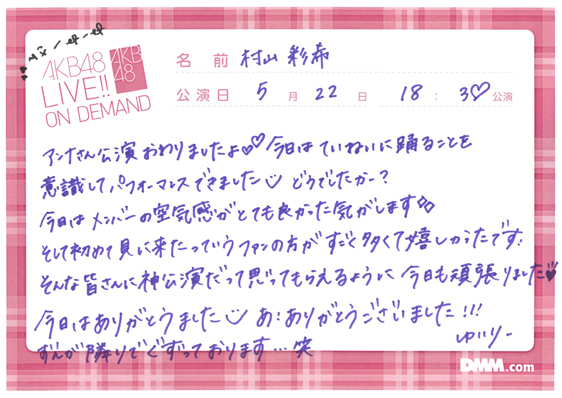 AKB48
LIVE!!
ON DEMAND
AKB
48
名 前 村山 彩希
公演日 5 月 22 日 18 : 30 公演
アンナさん公演おわりましたよ♡♡今日はていねいに踊ることを
意識してパフォーマンスできました どうでしたかー?
今日はメンバーの空気感がとても良かった気がします
そして初めて見に来たっていうファンの方がすごく多くて嬉しかったです!
そんな皆さんに神公演だって思ってもらえるように 今日も頑張りました
今日はありがとうました あ!ありがとうございました!!!
ずんが隣りでぐずっております…笑 ゆいりー
DMM.com